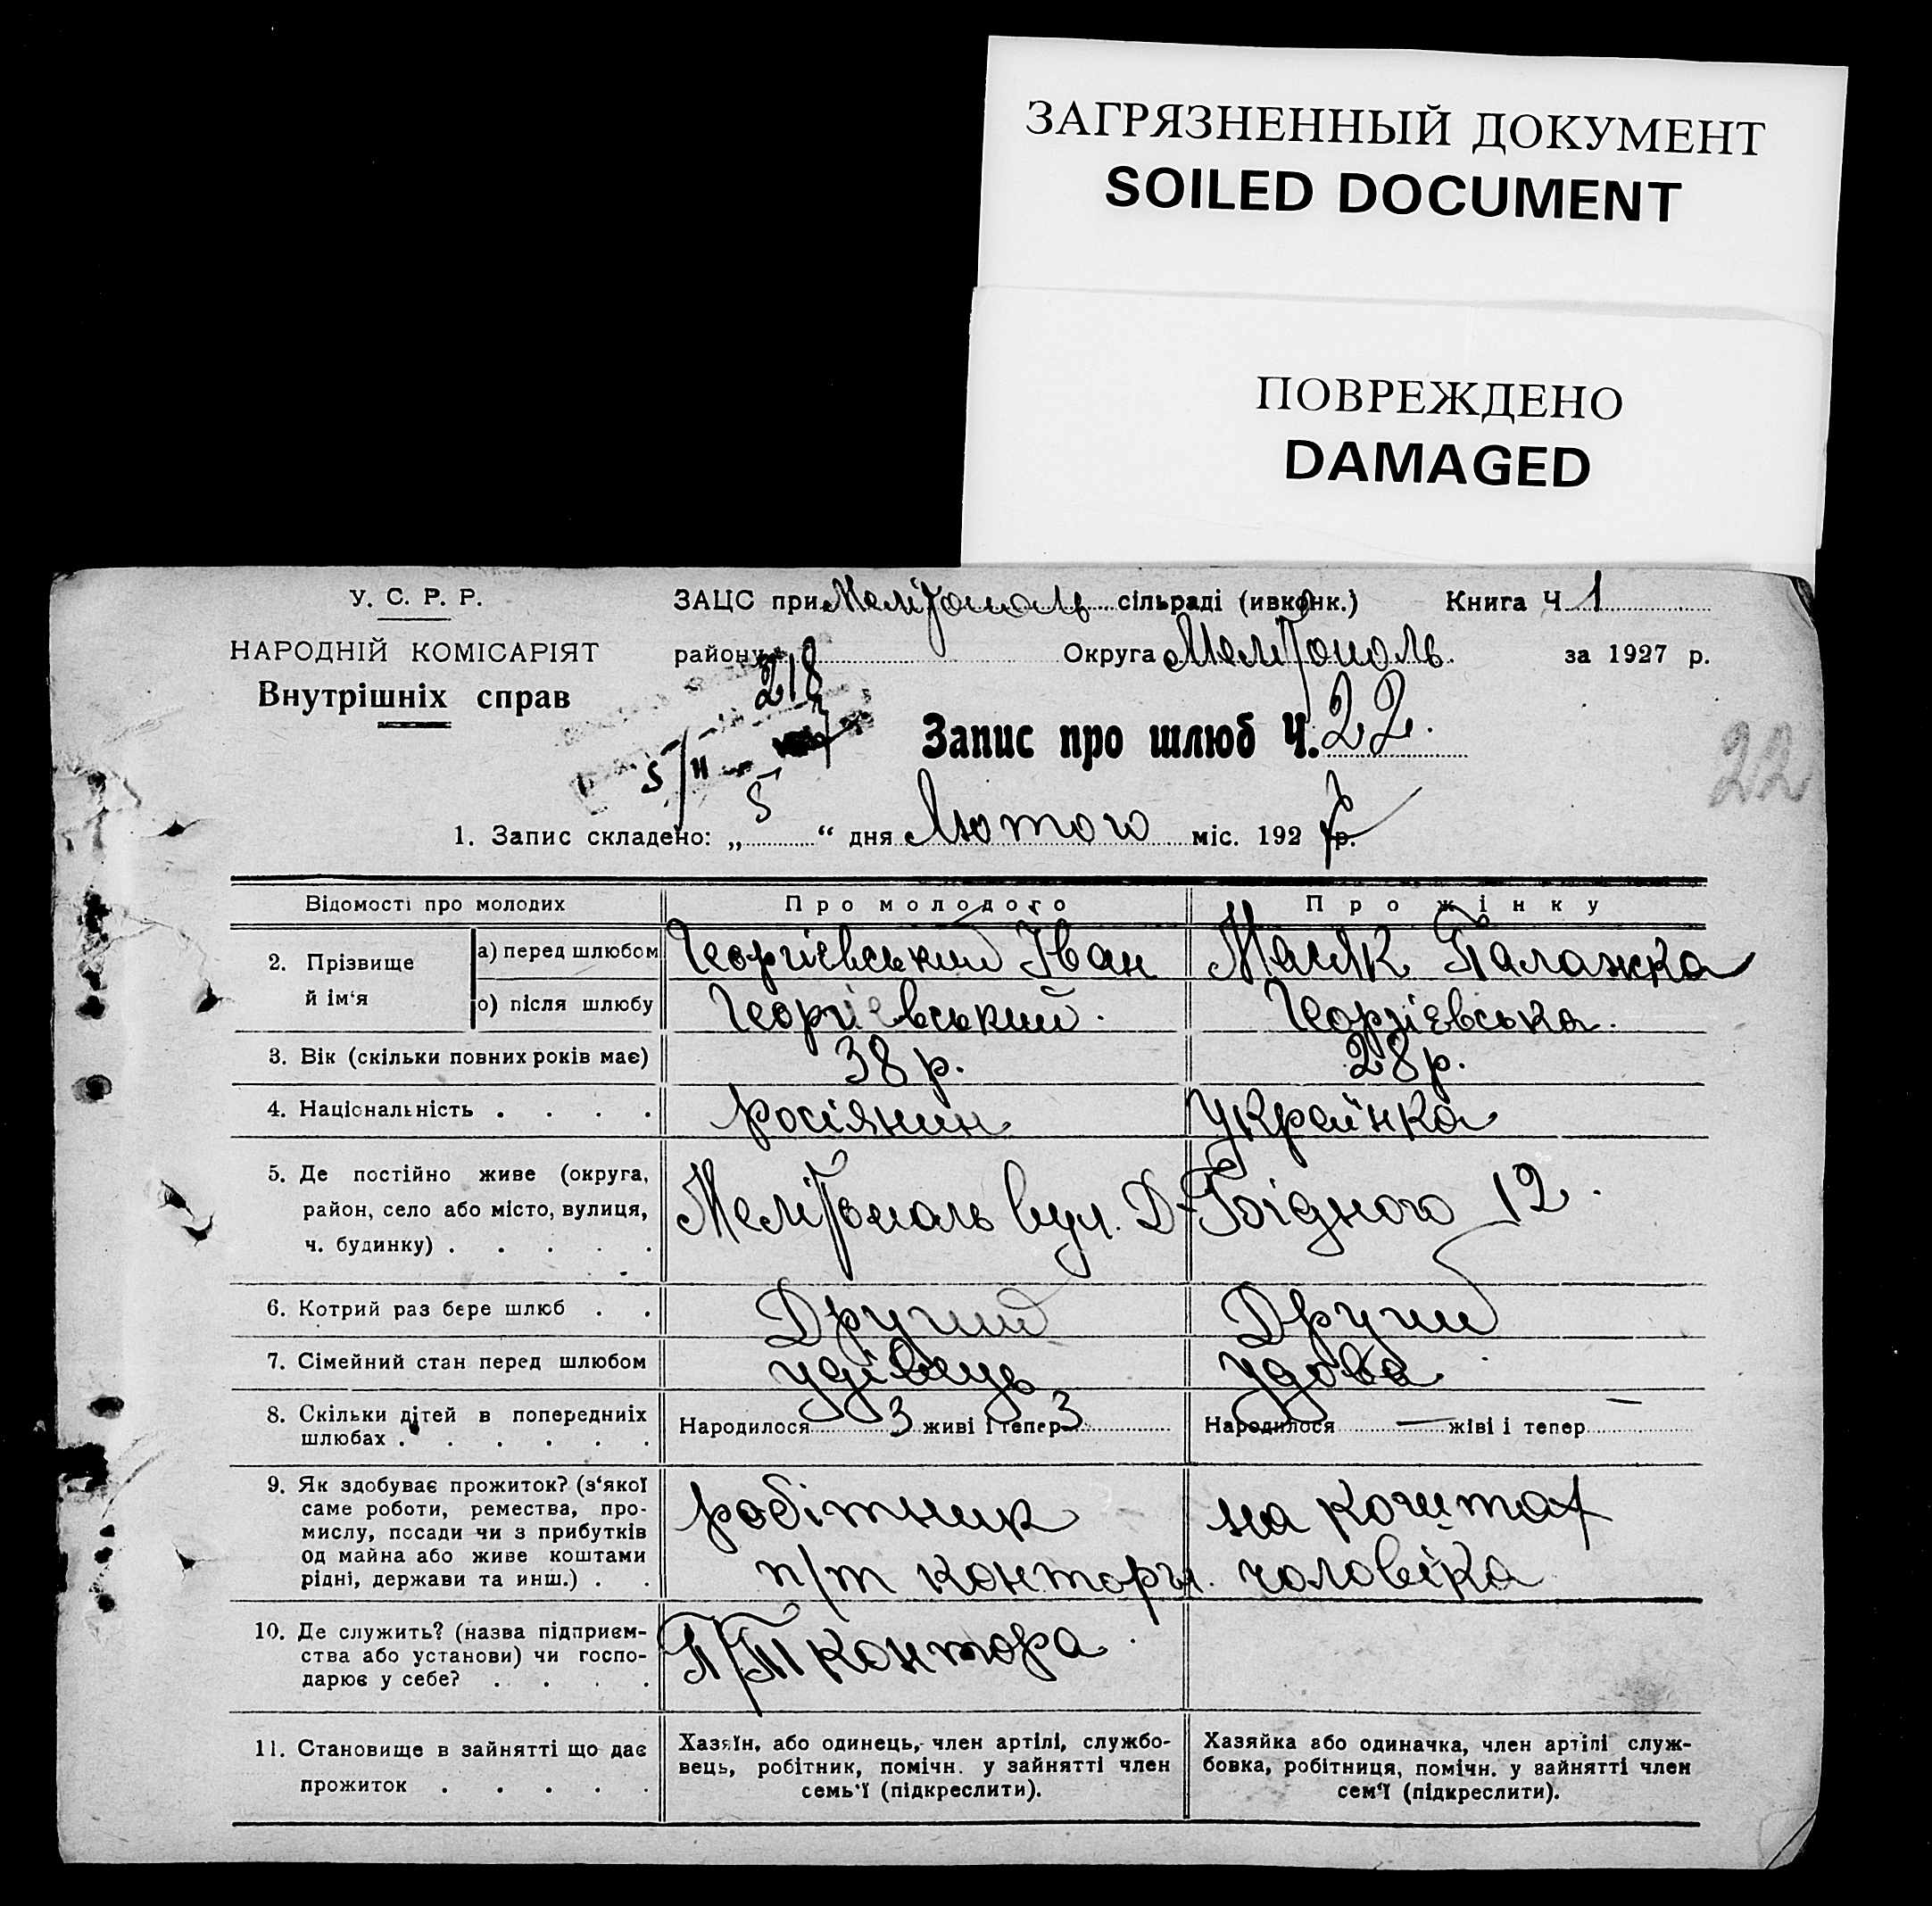 ЗАГРЯЗНЕННЫЙ ДОКУМЕНТ
SOILED DOCUMENT
ПОВРЕЖДЕНО
DAMAGED
У. С. Р. Р.
НАРОДНІЙ КОМІСАРІЯТ
Внутрішніх справ
ЗАЦС при Мелітополь сільраді (ивконк.) Книга Ч 1
району Округа Мелітополь за 1927 р.
218
5/II
Запис про шлюб Ч. 22.
22
1. Запис складено: „ 5 “ дня Лютого міс. 192 7 р.
Відомості про молодих Про молодого Про жінку
2. Прізвище й ім‘я а) перед шлюбом Георгієвський Іван Маляк Палажка
о) після шлюбу Георгієвський. Георгієвська.
3. Вік (скільки повних років має) 38 р. 28 р.
4. Національність . . . . росіянин Українка
5. Де постійно живе (округа,
район, село або місто, вулиця,
ч. будинку) . . . . .
Мелітополь вул. Д-Бідного 12.
6. Котрий раз бере шлюб . . Другий Другий
7. Сімейний стан перед шлюбом удівець удова
8. Скільки дітей в попередниіх
шлюбах . . . . . .
Народилося 3 живі і тепер 3 Народилося — жіві і тепер —
9. Як здобуває прожиток? (з‘якої
саме роботи, ремества, про-
мислу, посади чи з прибутків
од майна або живе коштами
рідні, держави та инш.) . .
робітник
п/т конторы.
на коштах
чоловіка
10. Де служить? (назва підприєм-
ства або установи) чи госпо-
дарює у себе? . . . .
П/Т контора.
11. Становище в зайнятті що дає
прожиток . . . . .
Хазяїн, або одинець, член артілі, службо-
вець, робітник, помічн. у зайнятті член
семь‘ї (підкреслити).
Хазяйка або одиначка, член артілі служ-
бовка, робітниця, помічн. у зайнятті член
сем‘ї (підкреслити).